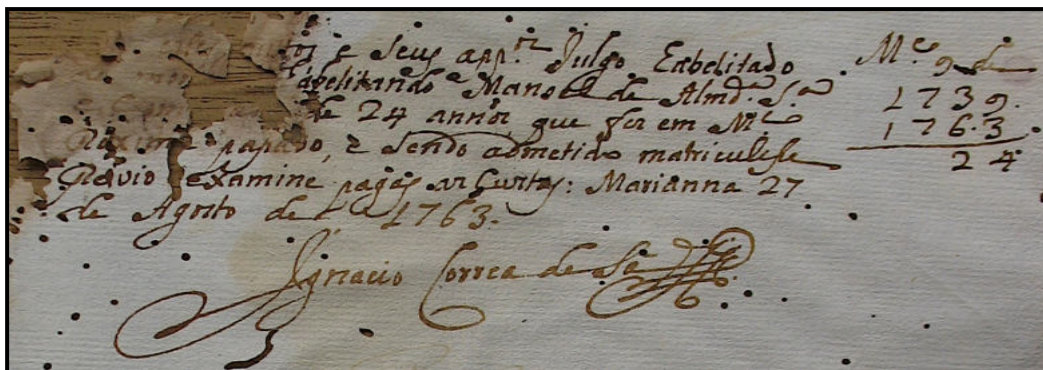 e Seus app.es Julgo Eabelitado
abelitando Mano el de Almd.a S.a
de 24 annos, que fez em M.ço
proximo papado, e Sendo admetido matriculese
previo examine pagas as Custas: Marianna 27
de Agosto de 1763.
Ignacio Correa de Sa
M.ço 9 de
1739.
1763
24